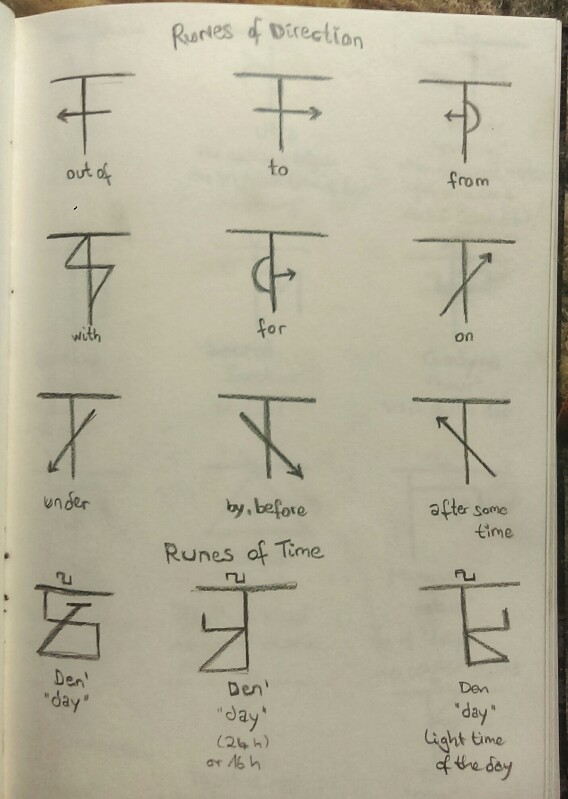 Runes of Direction
out of
to
from
with
for
on
under
by, before
after some
time
Runes of Time
Den'
"day"
Den'
"day"
(24 h)
or 16 h
Den
"day"
Light time
of the day